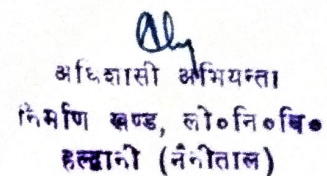 अधिशासी अभियन्ता
निर्माण खण्ड, लो०नि०बि०
हल्द्वानी (नैनीताल)